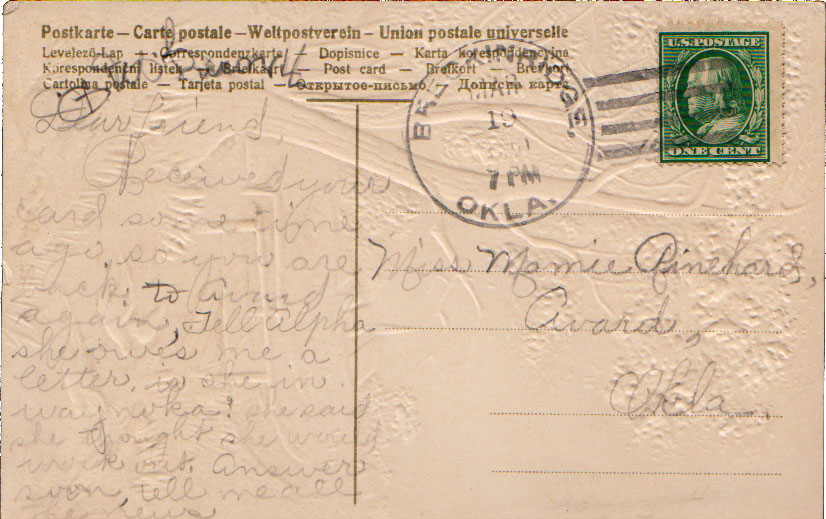 Postkarte — Carte postale — Weltpostverein — Union postale universelle
Levelező-Lap — Correspondenzkarte — Dopisnice — Karta korespondencyjna
Korespondenční lístek — Briefkaart — Post card — Brefkort — Brevkort
Cartolina postale — Tarjeta postal — Открытое-письмо — Дописна карта
U.S. POSTAGE
ONE CENT
MAR
19
7 PM
OKLA.
Dear friend,
Received your
card some time
ago, so you are
back to Avard
again, Tell Alpha
she owes me a
letter. is she in
waynoka? she said
she thought she would
work out. Answer
soon, tell me all
the news
Miss Mamie Rinehard,
Avard,
Okla.